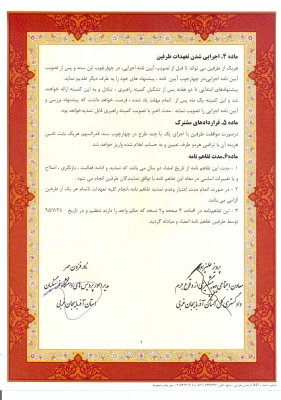 ماده ۴. اجرایی شدن تعهدات طرفین
هریک از طرفین می تواند تا قبل از تصویب آیین نامه اجرایی، در چهارچوب این سند و پس از تصویب
آیین نامه اجرایی، در چهارچوب آیین نامه، پیشنهاد های خود را به طرف دیگر تقدیم نماید.
پیشنهادهای ابتدایی تا دو هفته پس از تشکیل کمیته راهبری، تبادل و به این کمیته ارائه خواهند
شد و این کمیته یک ماه پس از اتمام مهلت یاد شده، فرصت خواهد داشت که پیشنهاد بررسی و
آیین نامه اجرایی را تصویب نماید. مدت اخیر با تصویب کمیته راهبری قابل تمدید خواهد بود.
ماده ۵. قراردادهای مشترک
درصورت موافقت طرفین با اجرای یک یا چند طرح در چهارچوب سند، قدرالسهم هریک بابت تامین
هزینه آن با تراضی هردو طرف تعیین و به حساب اعلام شده واریز خواهد شد.
ماده ۶. مدت تفاهم نامه
۱ - مدت این تفاهم نامه از تاریخ امضاء دو سال می باشد که تمدید و ادامه فعالیت، بازنگری، اصلاح
و یا تغییرات اساسی در مفاد این تفاهم نامه با توافق نمایندگان طرفین انجام می شود.
۲ - در صورت اتمام مدت اعتبار وعدم تمدید تفاهم نامه انجام کلیه تعهدات ناتمام هر یک از طرفین
الزامی می باشد.
۳ - این تفاهم‌نامه در ۶ماده، ۴ صفحه و ۲ نسخه که حکم واحد را دارند تنظیم و در تاریخ
توسط طرفین تفاهم نامه امضاء و مبادله گردید.
معاون اجتماعی و پیشگیری از وقوع جرم
دادگستری کل استان آذربایجان غربی
استان آذربایجان غربی